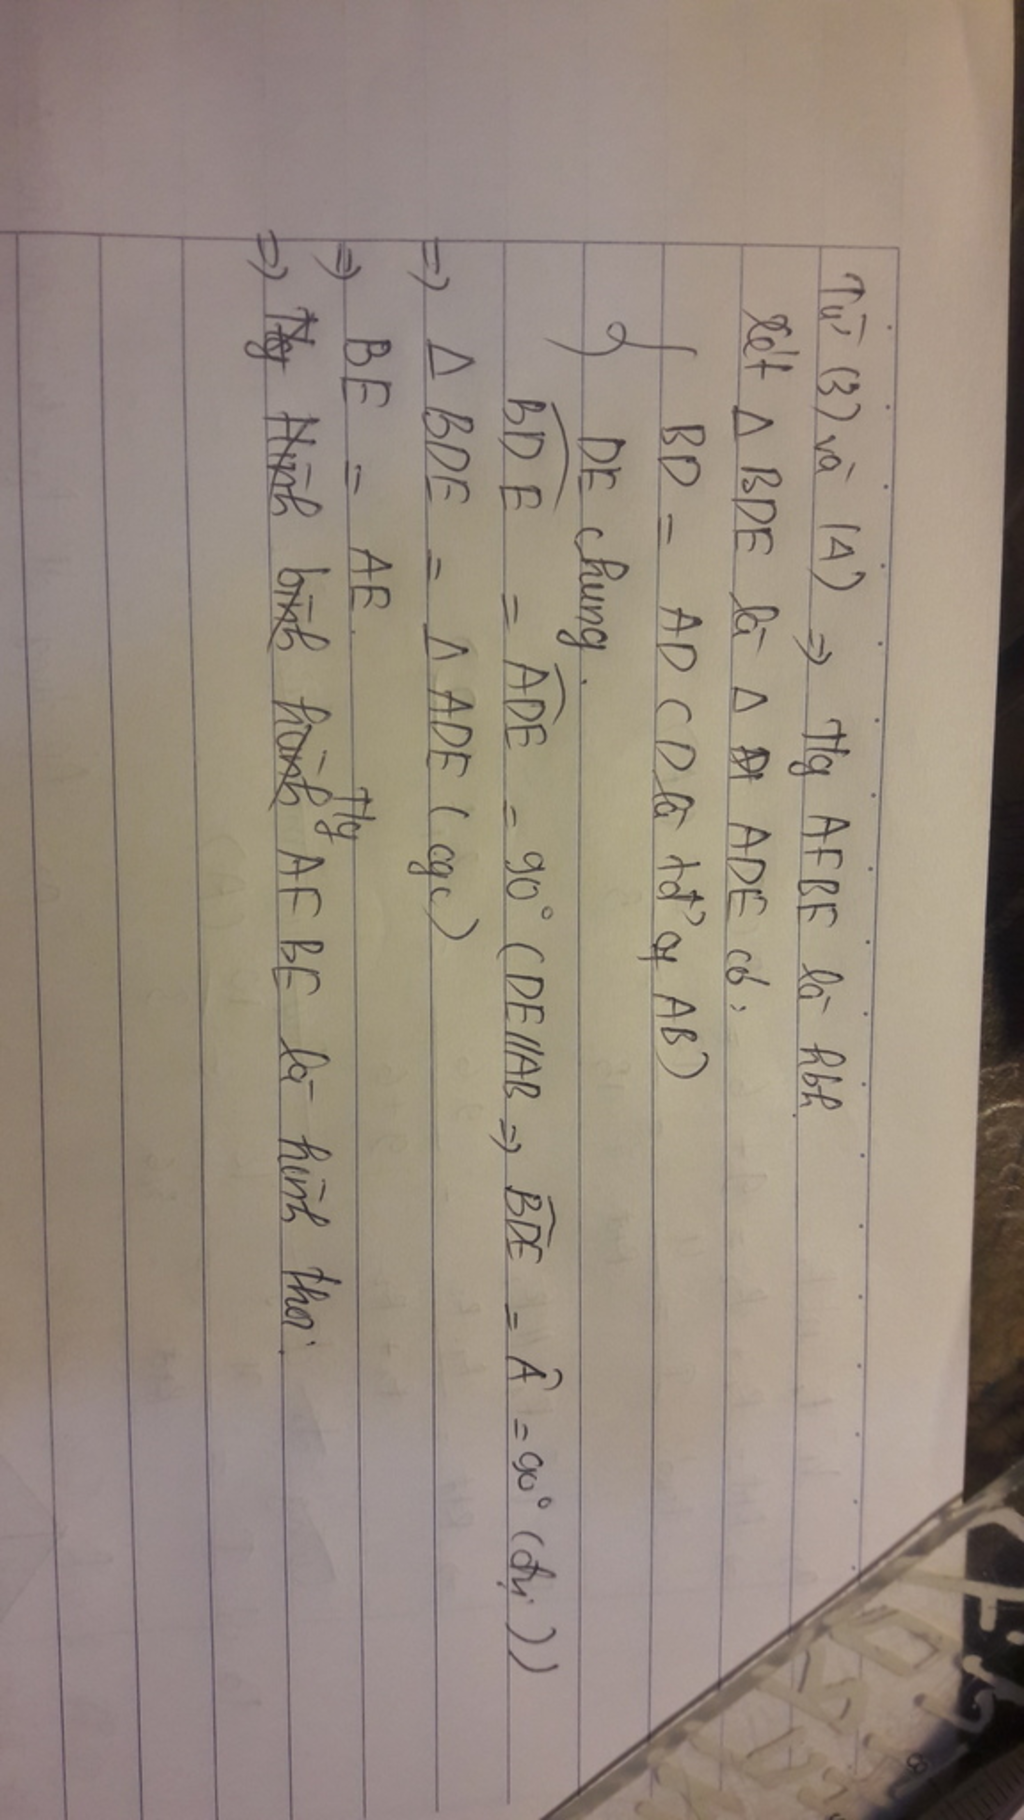 Từ (3) và (4) => Tfg AFBE là hbh
Xét Δ BDE là Δ ADE có,
BD = AD (D là tđ' of AB)
DE chung.
BDE = ADE = 90° (DE//AB => BDE = Â = 90° (đv))
=> Δ BDE = Δ ADE (cgc)
=> BE = AE.
=> Tfg AFBE là hình thoi.